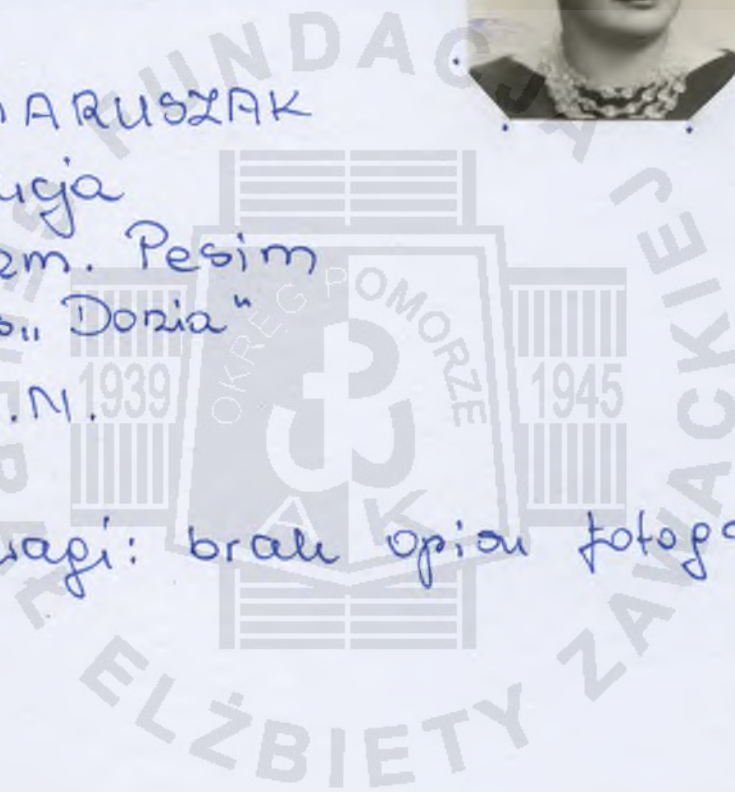 ARUSZAK
ucja
zm. Pesim
ps „Dozia"
.M.
wagi: brak opisu fotogr
FUNDACJA
ELŻBIETY ZAWACKIEJ
OKRĘG POMORZE
1939
1945
AK